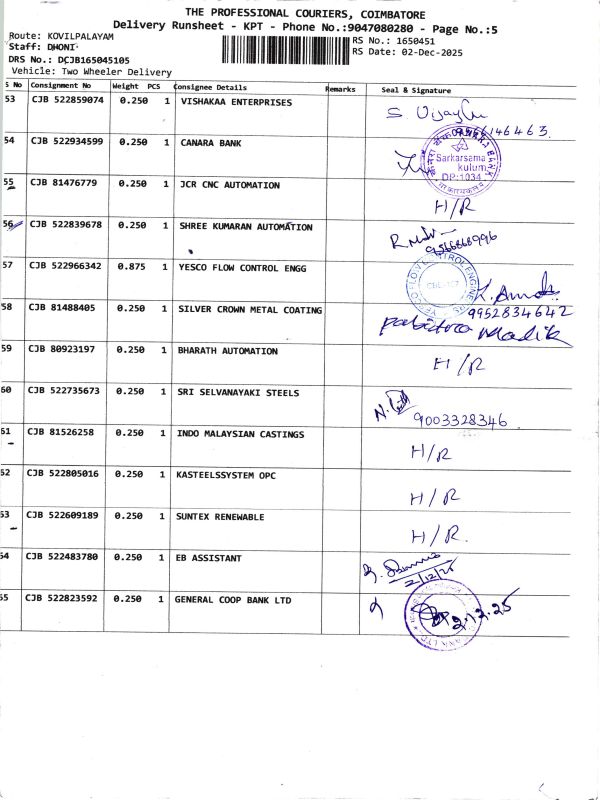 THE PROFESSIONAL COURIERS, COIMBATORE
Delivery Runsheet - KPT - Phone No.:9047080280 - Page No.:5
Route: KOVILPALAYAM
RS No.: 1650451
Staff: DHONI
RS Date: 02-Dec-2025
DRS No.: DCJB165045105
Vehicle: Two Wheeler Delivery
S No Consignment No Weight PCS Consignee Details Remarks Seal & Signature
53 CJB 522859074 0.250 1 VISHAKAA ENTERPRISES
S
9566146463
54 CJB 522934599 0.250 1 CANARA BANK
Sarkarsama
kulum
DP:1034
55 CJB 81476779 0.250 1 JCR CNC AUTOMATION H/R
56 CJB 522839678 0.250 1 SHREE KUMARAN AUTOMATION
9566868996
57 CJB 522966342 0.875 1 YESCO FLOW CONTROL ENGG
9952834642
58 CJB 81488405 0.250 1 SILVER CROWN METAL COATING
59 CJB 80923197 0.250 1 BHARATH AUTOMATION H/R
60 CJB 522735673 0.250 1 SRI SELVANAYAKI STEELS
9003328346
61 CJB 81526258 0.250 1 INDO MALAYSIAN CASTINGS H/R
62 CJB 522805016 0.250 1 KASTEELSSYSTEM OPC H/R
63 CJB 522609189 0.250 1 SUNTEX RENEWABLE H/R.
64 CJB 522483780 0.250 1 EB ASSISTANT
2/12/25
65 CJB 522823592 0.250 1 GENERAL COOP BANK LTD
2.12.25